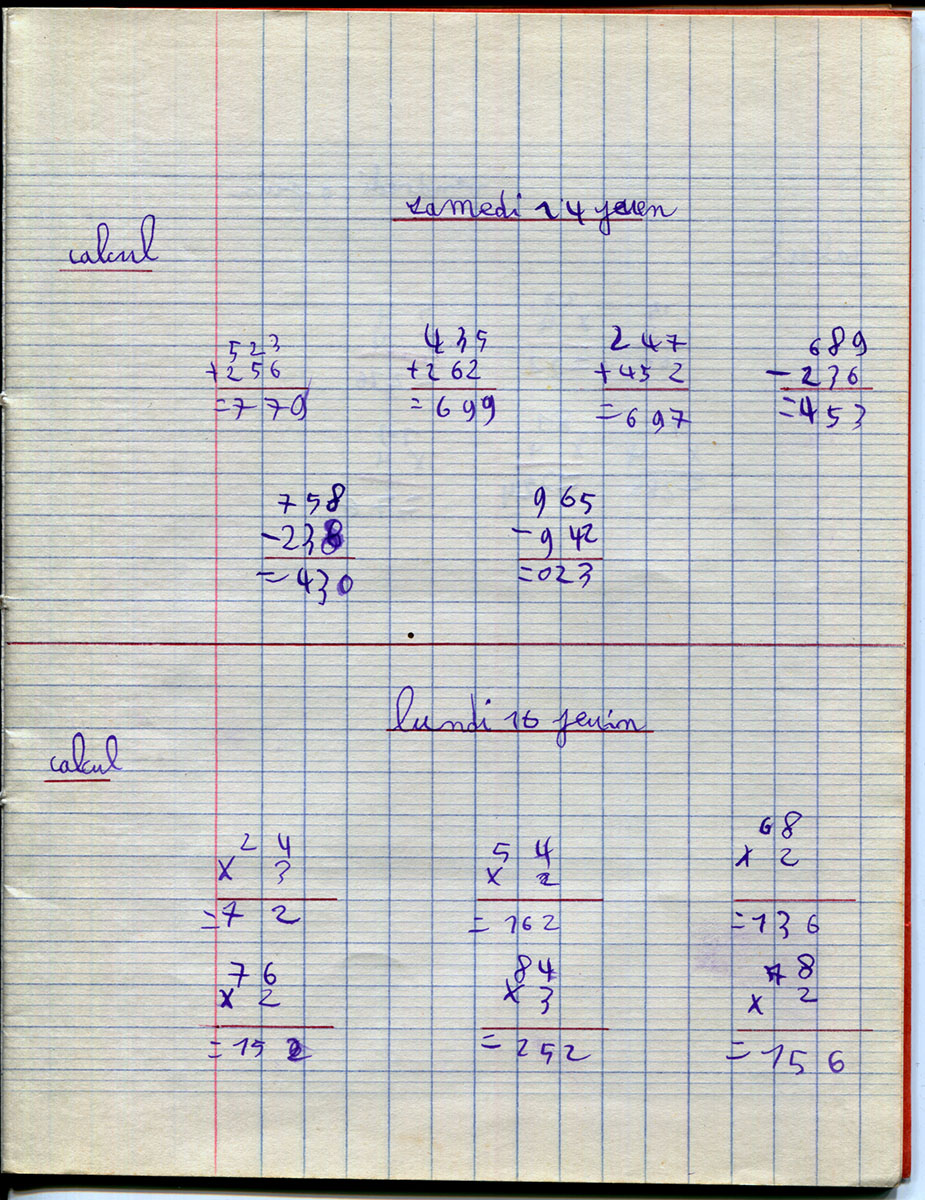 samedi 14 jeuen
calcul
523 435 247 689
+256 +262 +452 -236
=779 =699 =697 =453
758 965
-238 -942
=430 =023
lundi 16 jeuin
calcul
24 54 68
x 3 x 2 x 2
=72 =162 =136
76 84 78
x 2 x 3 x 2
=152 =252 =156